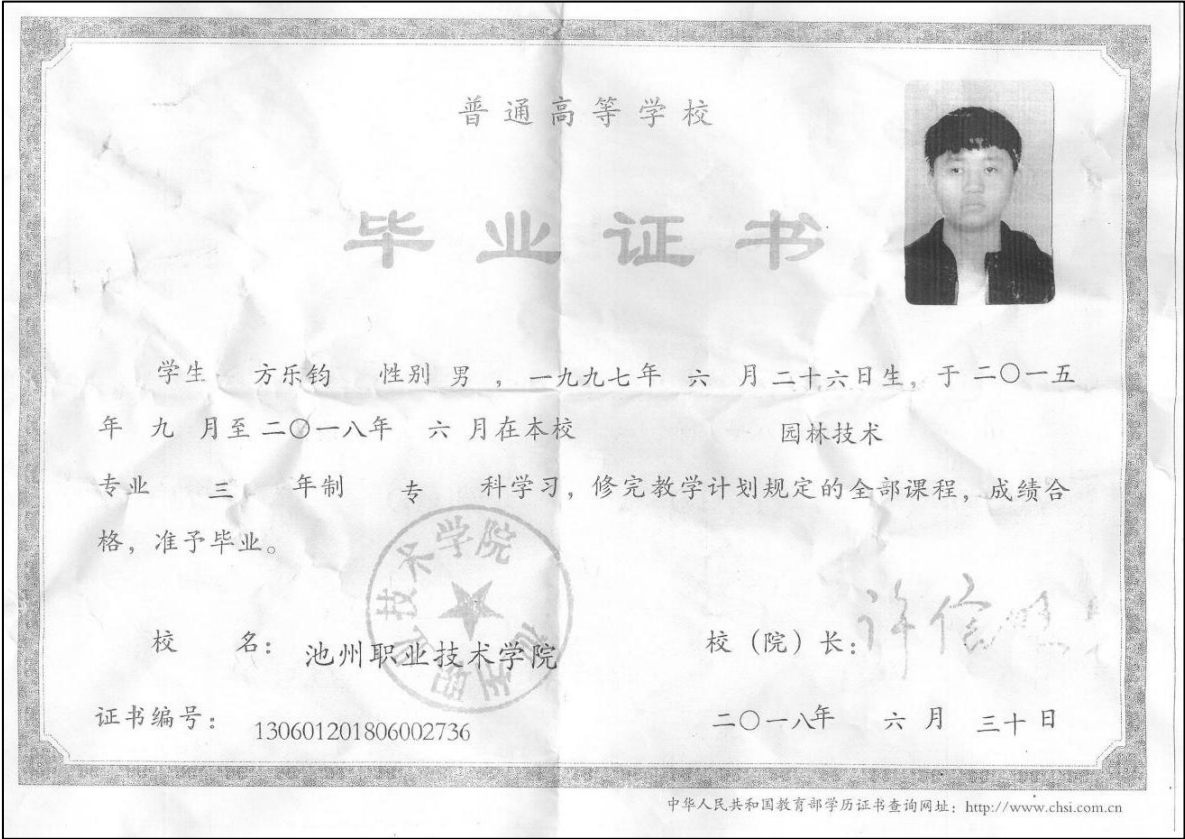 普通高等学校
毕业证书
学生 方乐钧 性别 男 ，一九九七年 六 月二十六日生，于二〇一五
年 九 月至二〇一八年 六 月在本校 园林技术
专业 三 年制 专 科学习，修完教学计划规定的全部课程，成绩合
格，准予毕业。
校 名：池州职业技术学院
校（院）长：
证书编号：130601201806002736
二〇一八年 六 月 三十日
中华人民共和国教育部学历证书查询网址：http://www.chsi.com.cn